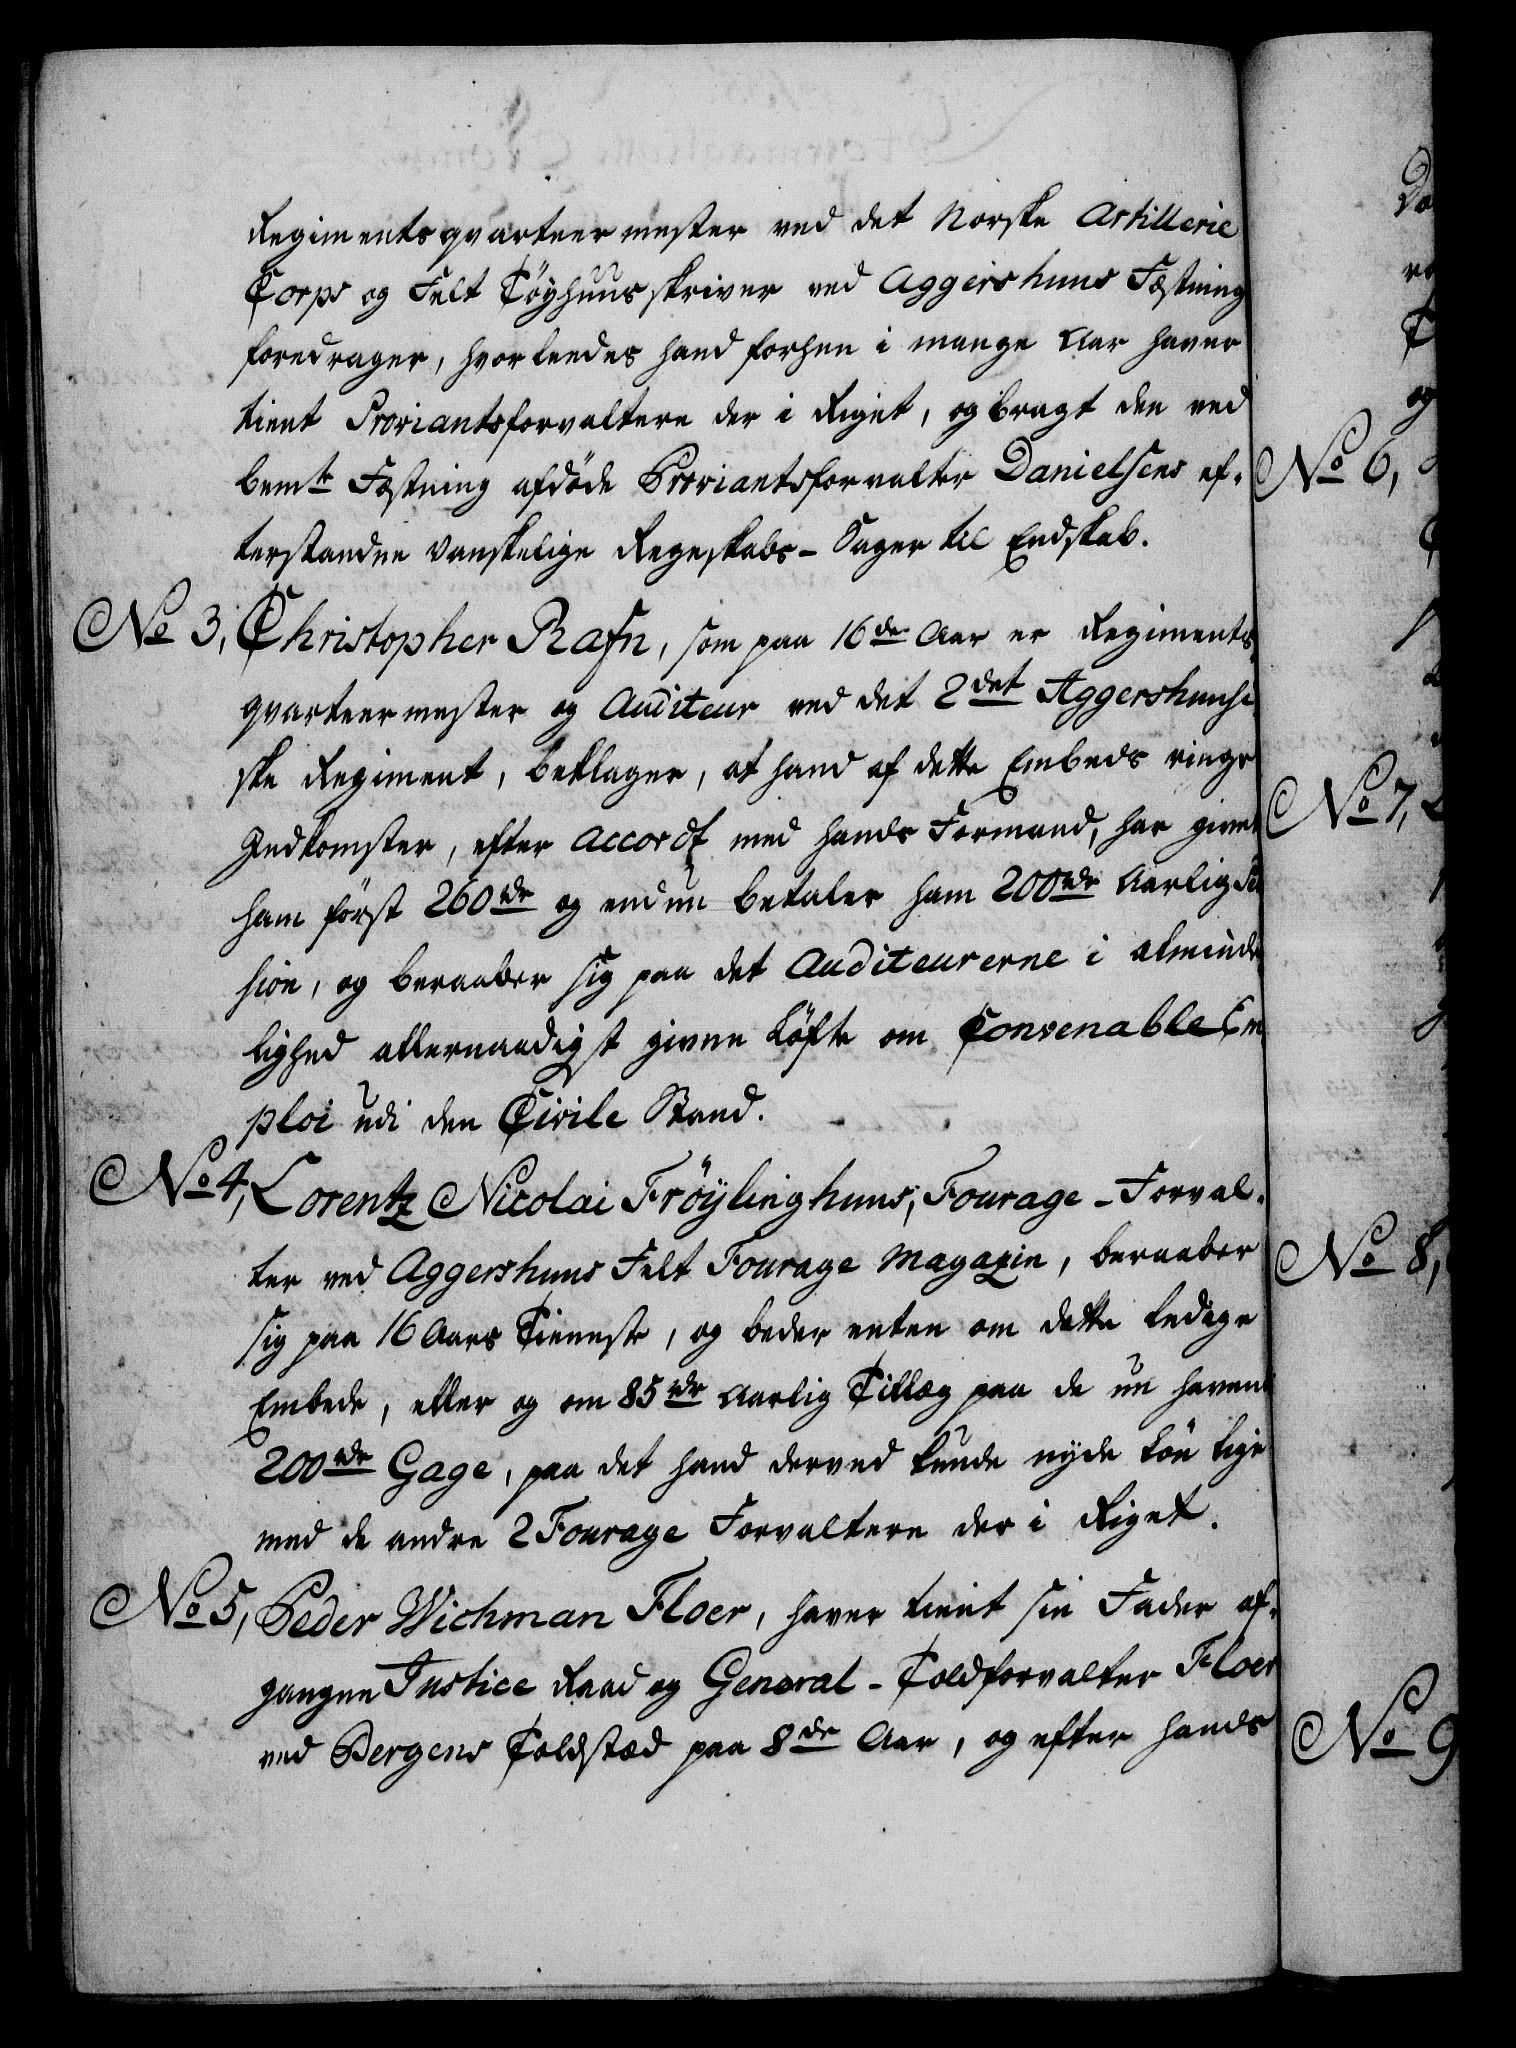 Regimentsqvarteermester ved det Norske Artillerie
Corps og Felt Töyhuusskriver ved Aggershuus Fæstning
foredrager, hvorleedes hand forhen i mange Aar haver
tient Proviantsforvaltere der i Riget, og bragt den ved
bemte Fæstning afdöde Proviantsforvalter Danielsens ef-
terstandne vanskelige Regnskabs-Sager til Endskab.
No 3, Christopher Rafn, som paa 16de Aar er Regiments
qvarteermester og Auditeur ved det 2det Aggershuusi
ske Regiment, beklager, at hand af dette Embeds ringe
Indkomster, efter Accordt med hands Formand, har givet
ham först 260rdr og endnu betaler ham 200rdr Aarlig Pen
sion, og beraaber sig paa det Auditeurerne i alminde
lighed allernaadigst givne Löfte om Convenable Em
ploi udi den Civile Stand.
No 4, Lorentz Nicolai Fröylinghuus, Fourage-Forval-
ter ved Aggershuus Felt Fourage Magazin, beraaber
sig paa 16 Aars Tienneste, og beder enten om dette ledige
Embede, eller og om 85rdr Aarlig Tillæg paa de nu havende
200rdr Gage, paa det hand derved kunde nyde Lön lige
med de andre 2 Fourage Forvaltere der i Riget.
No 5, Peder Wichman Floer, haver tient sin Fader af-
gangne Justice Raad og General-Toldforvalter Floer
ved Bergens Toldstæd paa 8de Aar, og efter hands
No 6,
No 7,
No 8,
No 9